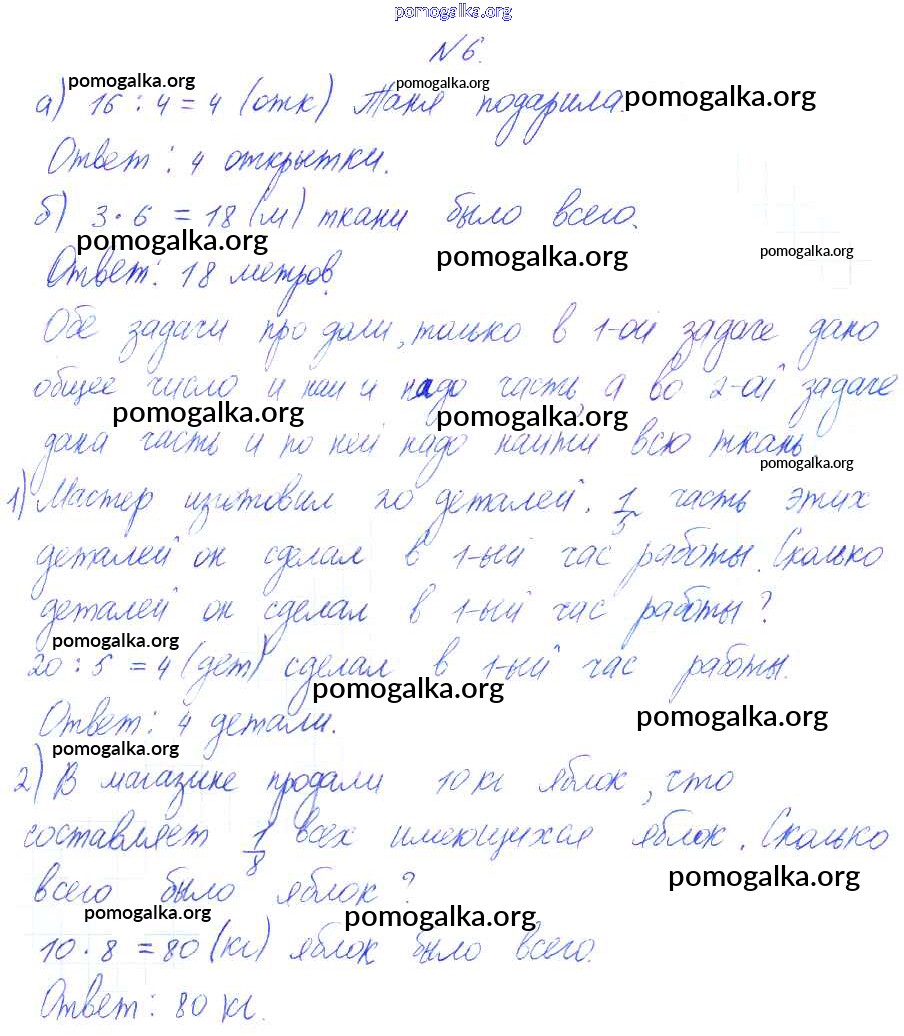 pomogalka.org
N 6.
pomogalka.org pomogalka.org
а) 16 : 4 = 4 (отк) Таня подарила. pomogalka.org
Ответ: 4 открытки.
б) 3 · 6 = 18 (м) ткани было всего.
pomogalka.org pomogalka.org pomogalka.org
Ответ: 18 метров.
Обе задачи про доли, только в 1-ой задаче дано
общее число и надо часть, а во 2-ой задаче
pomogalka.org pomogalka.org
дана часть и по ней надо найти всю ткань.
pomogalka.org
1) Мастер изготовил 20 деталей. 1/5 часть этих
деталей он сделал в 1-ый час работы. Сколько
деталей он сделал в 1-ый час работы?
pomogalka.org
20 : 5 = 4 (дет) сделал в 1-ый час работы.
pomogalka.org
Ответ: 4 детали. pomogalka.org
pomogalka.org
2) В магазине продали 10 кг яблок, что
составляет 1/8 всех имеющихся яблок. Сколько
всего было яблок? pomogalka.org
pomogalka.org pomogalka.org
10 · 8 = 80 (кг) яблок было всего.
Ответ: 80 кг.